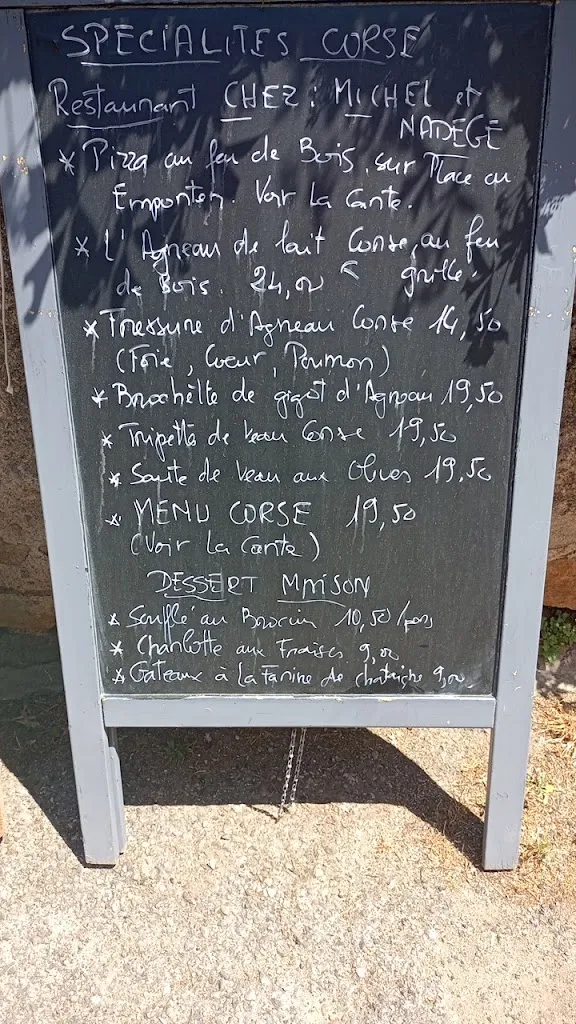 SPECIALITES CORSE
Restaurant CHEZ : MICHEL et
NADEGE
* Pizza au feu de Bois, sur Place ou
Emporter. Voir La Carte.
* L'Agneau de lait Corse, au feu
de Bois. 24,00 € grillé.
* Fressure d'Agneau Corse 14,50
(Foie, Coeur, Poumon)
* Brochette de gigot d'Agneau 19,50
* Tripette de Veau Corse 19,50
* Saute de Veau aux Olives 19,50
* MENU CORSE 19,50
(Voir La Carte)
DESSERT MAISON
* Soufflé au Brocciu 10,50/pers
* Charlotte aux Fraises 9,00
* Gateaux à La Farine de chataigne 9,00.